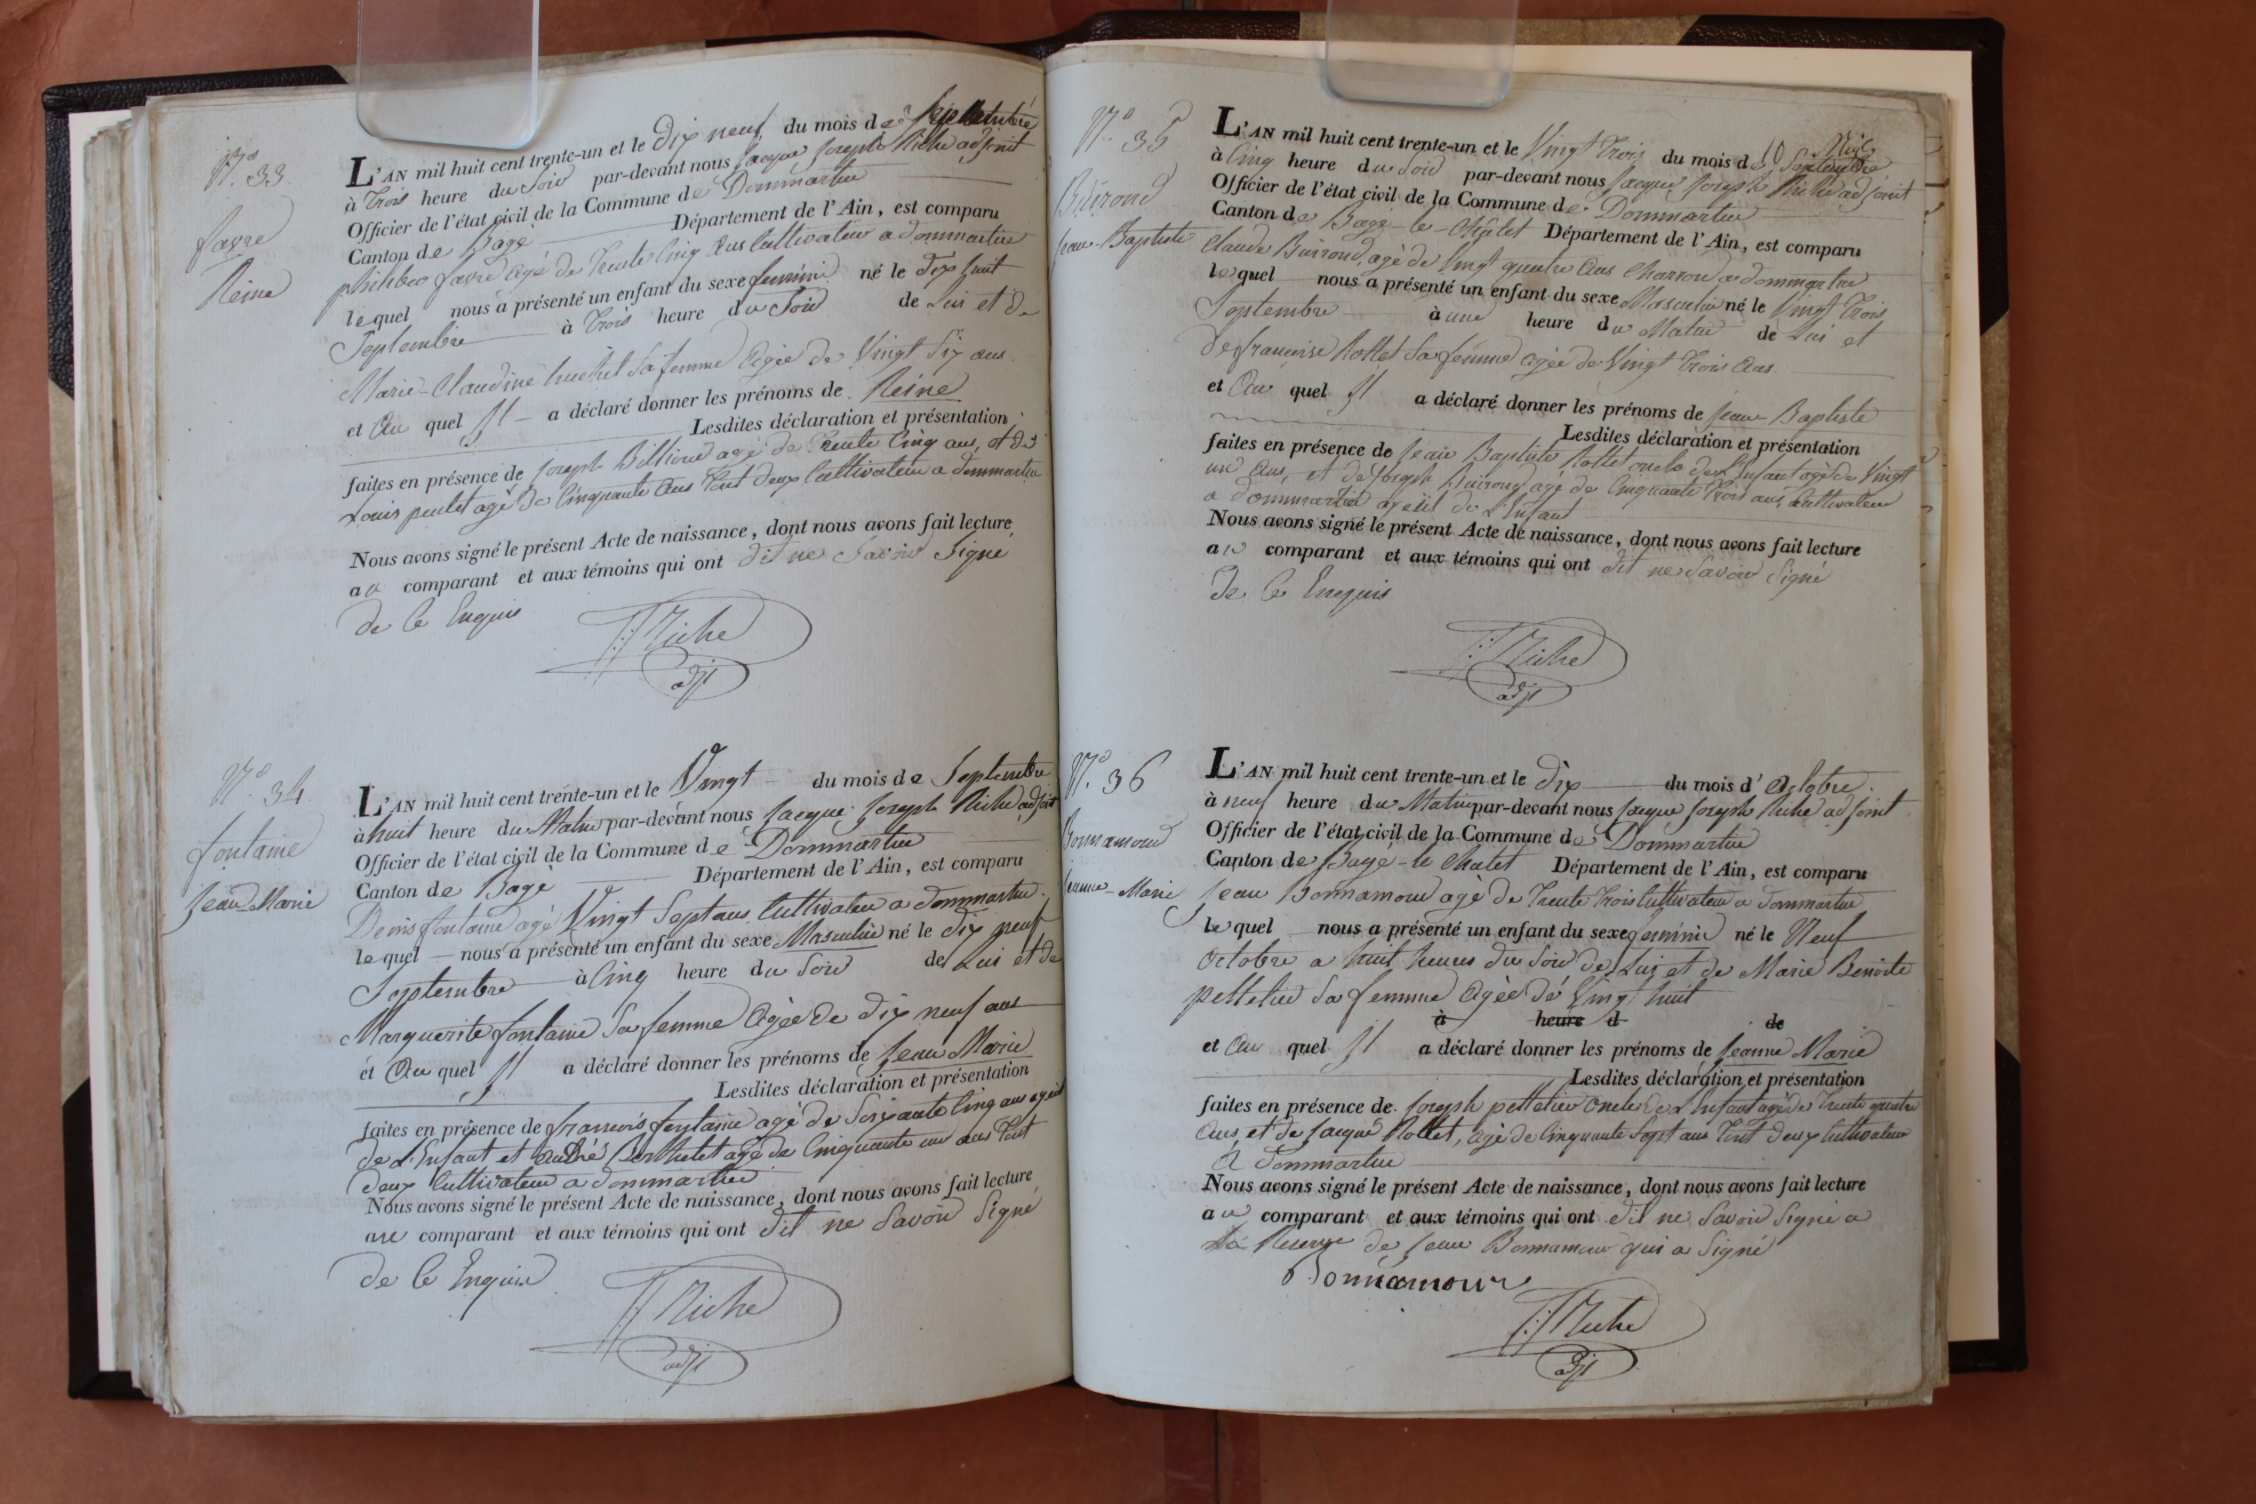 N.° 33.
favre
Reine
L'AN mil huit cent trente-un et le Dix neuf du mois de Septembre
à Trois heure du Soir par-devant nous Jacque Joseph Riche adjoint
Officier de l'état civil de la Commune de Dommartin
Canton de Bagé Département de l'Ain, est comparu
philiber favre agé de Trente Cinq ans Cultivateur a dommartin
lequel nous a présenté un enfant du sexe feminin né le Dix huit
Septembre à Trois heure du Soir de Lui et de
Marie-Claudine sa femme Agée de Vingt Six ans
et Au quel Il a déclaré donner les prénoms de Reine
Lesdites déclaration et présentation
faites en présence de Joseph Billioud agé de Trente Cinq ans, et de
Louis peulet agé de Cinquante ans Tout deux Cultivateur a dommartin
Nous avons signé le présent Acte de naissance, dont nous avons fait lecture
au comparant et aux témoins qui ont dit ne Savoir Signé
de Ce Enquis
Riche
adjt
N.° 34.
fontaine
Jean-Marie
L'AN mil huit cent trente-un et le Vingt du mois de Septembre
à huit heure du Matin par-devant nous Jacque Joseph Riche adjoint
Officier de l'état civil de la Commune de Dommartin
Canton de Bagé Département de l'Ain, est comparu
Denis fontaine agé Vingt Sept ans Cultivateur a Dommartin
lequel nous a présenté un enfant du sexe Masculin né le Dix neuf
Septembre à Cinq heure du Soir de Lui et de
Marguerite fontaine Sa femme Agée de dix neuf ans
et Au quel Il a déclaré donner les prénoms de Jean Marie
Lesdites déclaration et présentation
faites en présence de francois fontaine agé de Soixante Cinq ans ayeul
de L'Enfant et André Berthelet agé de Cinquante un ans Tout
deux Cultivateur a dommartin
Nous avons signé le présent Acte de naissance, dont nous avons fait lecture
au comparant et aux témoins qui ont dit ne Savoir Signé
de Ce Enquis
Riche
adjt
N.° 35
Buiron
Jean-Baptiste
L'AN mil huit cent trente-un et le Vingt Trois du mois de Septembre
à Cinq heure du Soir par-devant nous Jacque Joseph Riche adjoint
Officier de l'état civil de la Commune de Dommartin
Canton de Bagé-le-Châtel Département de l'Ain, est comparu
Claude Buiron, agé de Vingt quatre Ans Charron a dommartin
lequel nous a présenté un enfant du sexe Masculin né le Vingt Trois
Septembre à une heure du Matin de Lui et
De francoise Rollet Sa femme agée de Vingt Trois ans
et Au quel Il a déclaré donner les prénoms de Jean-Baptiste
Lesdites déclaration et présentation
faites en présence de Jean Baptiste Rollet oncle de L'Enfant agé de Vingt
un Ans, et de Joseph Buiron agé de Cinquante Trois ans, Cultivateur
a dommartin ayeul de L'Enfant
Nous avons signé le présent Acte de naissance, dont nous avons fait lecture
au comparant et aux témoins qui ont dit ne Savoir Signé
de Ce Enquis
Riche
adjt
N.° 36
Bonnamour
Jeanne-Marie
L'AN mil huit cent trente-un et le dix du mois d' Octobre
à neuf heure du Matin par-devant nous Jacque Joseph Riche adjoint
Officier de l'état civil de la Commune de Dommartin
Canton de Bagé-le Chatel Département de l'Ain, est comparu
Jean Bonnamour agé de Trente Trois Cultivateur a Dommartin
lequel nous a présenté un enfant du sexe feminin né le Neuf
Octobre a huit heures du Soir de Lui et de Marie Benoite
pelletier Sa femme Agée de Vingt huit
à heure d de
et Au quel Il a déclaré donner les prénoms de Jeanne Marie
Lesdites déclaration et présentation
faites en présence de Joseph pelletier oncle de L'Enfant agé de Trente quatre
Ans, et de Jacque Rollet, agé de Cinquante Sept ans Tout deux Cultivateur
A Dommartin
Nous avons signé le présent Acte de naissance, dont nous avons fait lecture
au comparant et aux témoins qui ont dit ne Savoir Signé a
La Reserve de Jean Bonnamour qui a Signé
Bonnamour
Riche
adjt